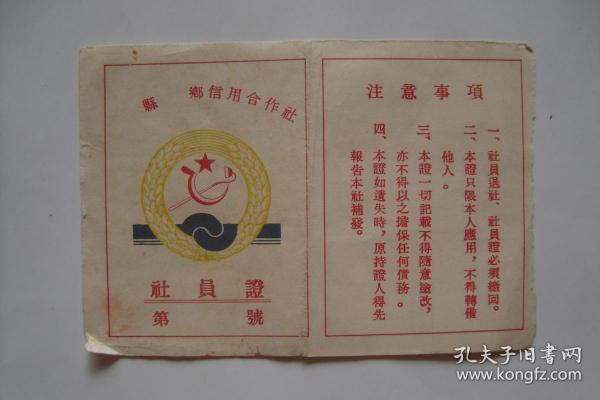 縣 鄉信用合作社
社員證
第 號
注意事項
一、社員退社、社員證必須繳回。
二、本證只限本人應用，不得轉借
他人。
三、本證一切記載不得隨意塗改，
亦不得以之擔保任何債務。
四、本證如遺失時，原持證人得先
報告本社補發。
孔夫子旧书网
www.kongfz.com